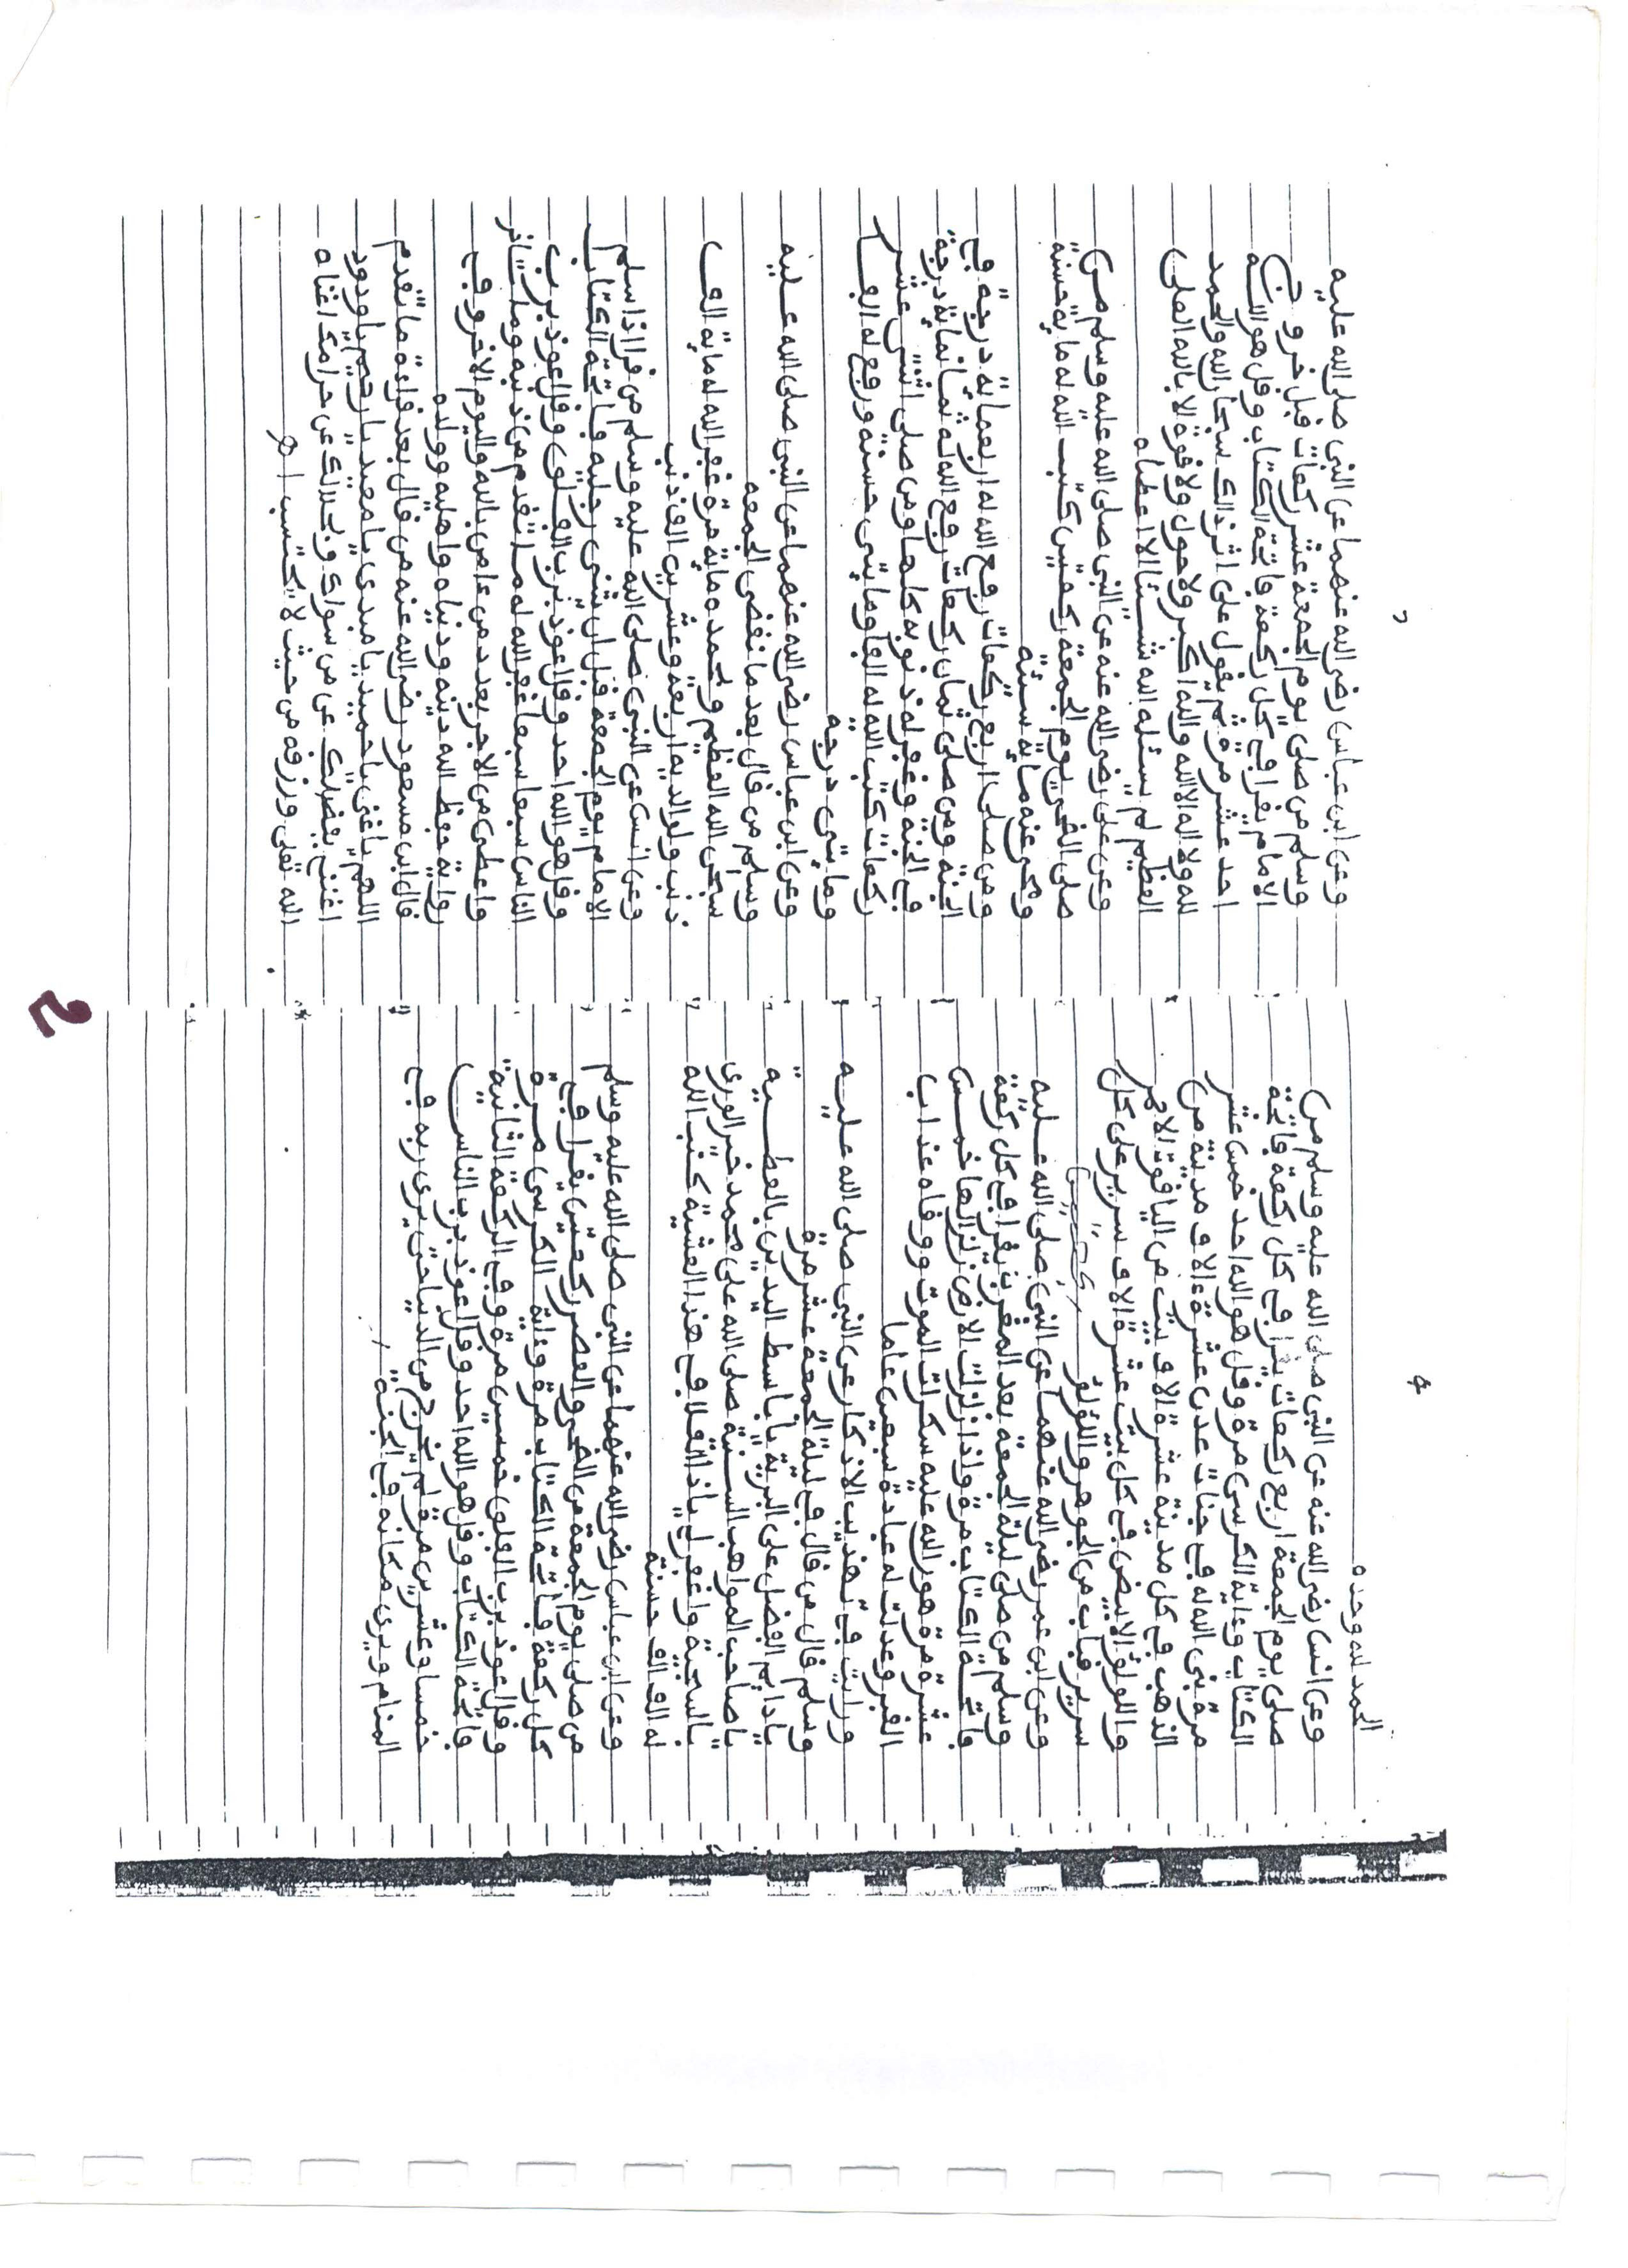 4
الحمد لله وحده
وعن انس رضي الله عنه عن النبي صلى الله عليه وسلم من
صلى يوم الجمعة اربع ركعات يقرا في كل ركعة فاتحة
الكتاب وءاية الكرسي مرة وقل هو الله احد خمس عشر
مرة بنى الله له في جنات عدن عشرة ءالاف مدينة من
الذهب في كل مدينة عشرة الاف بيت من الياقوت الاحمر
واللولؤ الابيض في كل بيت عشرة الاف سرير على كل
سرير قباب من الجوهر واللؤلؤ
وعن ابن عمر رضي الله عنهما عن النبي صلى الله عليه
وسلم من صلى ليلة الجمعة بعد المغرب يقرا في كل ركعة
فاتحة الكتاب مرة واذا زلزلت الارض زلزالها خمس
عشرة مرة هون الله عليه سكرات الموت ووقاه عذاب
القبر وعدلت له عبادة سبعين عاما
ورايت في تهذيب الاذكار عن النبي صلى الله عليه
وسلم قال من قال في ليلة الجمعة عشر مرة
يا دايم الفضل على البرية يا باسط اليدين بالعطية
يا صاحب المواهب السنية صلى الله على محمد خير الورى
بالسجية واغفر لي ياذا العلا في هذا العشية كتب الله
له الف الف حسنة
وعن ابن عباس رضي الله عنهما عن النبي صلى الله عليه وسلم
من صلى يوم الجمعة بين الظهر والعصر ركعتين يقرا في
كل ركعة فاتحة الكتاب مرة وءاية الكرسي مرة
وقل اعوذ برب الفلق خمس وعشرين مرة وفي الركعة الثانية
فاتحة الكتاب وقل هو الله احد وقل اعوذ برب الناس
خمسا وعشرين مرة لم يخرج من الدنيا حتى يرى ربه في
المنام ويرى مكانه في الجنة
وعن ابن عباس رضي الله عنهما عن النبي صلى الله عليه
وسلم من صلى يوم الجمعة عشر ركعات قبل خروج
الامام يقرا في كل ركعة فاتحة الكتاب وقل هو الله
احد عشر مرة ثم يقول على اثر ذالك سبحان الله والحمد
لله ولا اله الا الله والله اكبر ولا حول ولا قوة الا بالله العلي
العظيم لم يسئل الله شيئا الا اعطاه
وعن علي رضي الله عنه عن النبي صلى الله عليه وسلم من
صلى الضحى يوم الجمعة ركعتين كتب الله له ماية حسنة
ومحى عنه ماية سيئة
ومن صلى اربع ركعات رفع الله له اربعماية درجة في
الجنة ومن صلى ثمان ركعات رفع الله له ثمانماية درجة
في الجنة وغفر له ذنوبه كلها ومن صلى اثنتي عشر
ركعات كتب الله له الفا ومايتي حسنة ورفع له الفا
ومايتي درجة
وعن ابن عباس رضي الله عنهما عن النبي صلى الله عليه
وسلم من قال بعد ما تقضى الجمعه
سبحن الله العظيم وبحمده ماية مرة غفر الله له ماية الف
ذنب ولوالديه اربعة وعشرين الف ذنب
وعن انس عن النبي صلى الله عليه وسلم من قرا اذا سلم
الامام يوم الجمعة قبل ان يثني رجليه فاتحة الكتاب
وقل هو الله احد وقل اعوذ برب الفلق وقل اعوذ برب
الناس سبعا سبعا غفر الله له ما تقدم من ذنبه وما تاخر
واعطي من الاجر بعدد من ءامن بالله واليوم الاخر وفي
رواية حفظ الله دينه ودنياه واهليه وولده
قال ابن مسعود رضي الله عنه من قال بعد قراءة ما تقدم
اللهم يا غني يا حميد يا مبدئ يا معيد يا رحيم يا ودود
اغنني بفضلك عن من سواك وبحلالك عن حرامك اغناه
الله تعلى ورزقه من حيث لا يحتسب اهـ
2